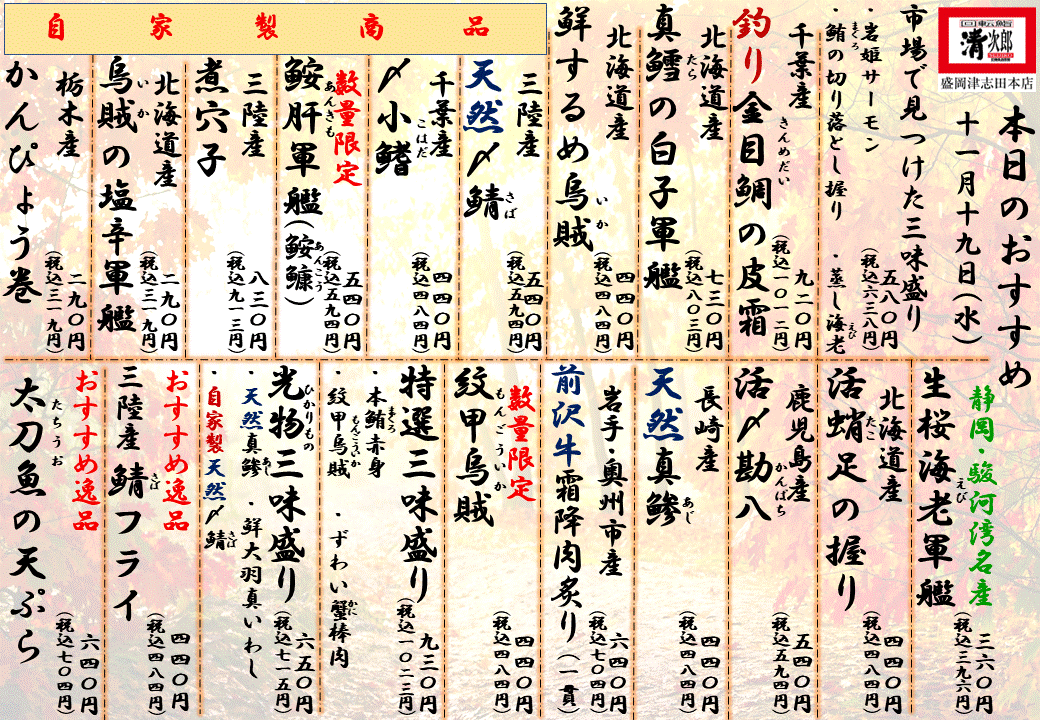 回転鮨
清次郎
盛岡津志田本店
本日のおすすめ
十一月十九日(水)
市場で見つけた三味盛り
・岩姫サーモン
・鮪の切り落とし握り
まぐろ
・蒸し海老
えび
五八〇円
(税込六三八円)
千葉産
釣り金目鯛の皮霜
きんめだい
九二〇円
(税込一〇一二円)
北海道産
真鱈の白子軍艦
たら
七三〇円
(税込八〇三円)
北海道産
鮮するめ烏賊
いか
四四〇円
(税込四八四円)
自家製商品
三陸産
天然〆鯖
さば
五四〇円
(税込五九四円)
千葉産
〆小鰭
こはだ
四四〇円
(税込四八四円)
数量限定
鮟肝軍艦(鮟鱇)
あんきも
あんこう
五四〇円
(税込五九四円)
三陸産
煮穴子
八三〇円
(税込九一三円)
北海道産
烏賊の塩辛軍艦
いか
二九〇円
(税込三一九円)
栃木産
かんぴょう巻
二九〇円
(税込三一九円)
静岡・駿河湾名産
生桜海老軍艦
えび
三六〇円
(税込三九六円)
北海道産
活蛸足の握り
たこ
四四〇円
(税込四八四円)
鹿児島産
活〆勘八
かんぱち
五四〇円
(税込五九四円)
長崎産
天然真鯵
あじ
四四〇円
(税込四八四円)
岩手・奥州市産
前沢牛霜降肉炙り(一貫)
六四〇円
(税込七〇四円)
数量限定
紋甲烏賊
もんごういか
四四〇円
(税込四八四円)
特選三味盛り
・本鮪赤身
まぐろ
・紋甲烏賊
もんごういか
・ずわい蟹棒肉
かに
九三〇円
(税込一〇二三円)
光物三味盛り
ひかりもの
・天然真鯵
あじ
・鮮大羽真いわし
・自家製天然〆鯖
さば
六五〇円
(税込七一五円)
おすすめ逸品
三陸産鯖フライ
さば
四四〇円
(税込四八四円)
おすすめ逸品
太刀魚の天ぷら
たちうお
六四〇円
(税込七〇四円)